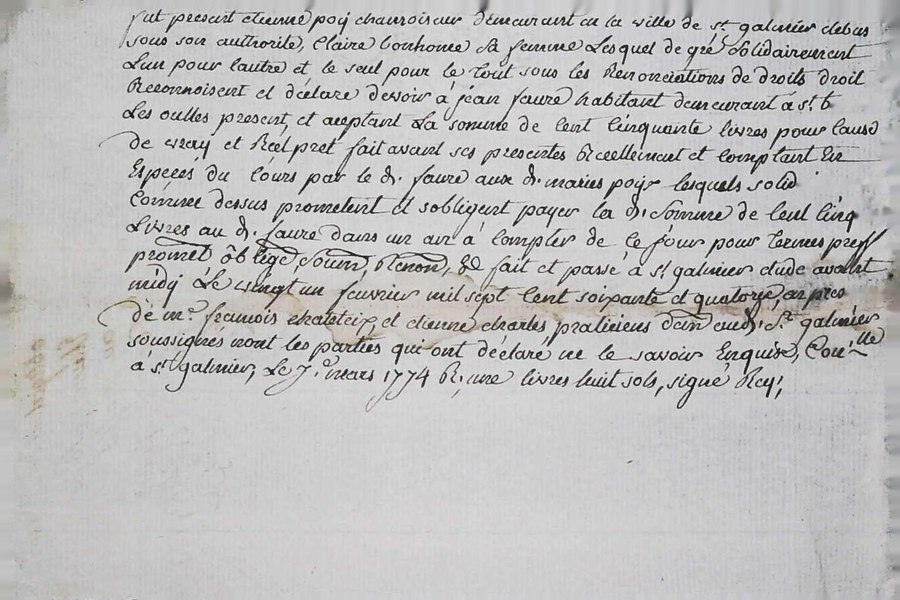 fut present etienne poÿ chamoiseur demeurant en la ville de st. galmier de lui
sous son authorité, Claire bonhome sa femme Lesquel de gré solidairement
L'un pour lautre et le seul pour le tout sous les Renonciations de droits droit
Reconnoisent et déclare devoir à jean faure habitant demeurant à st. b
Les oulles present, et aceptant La somme de Cent Cinquante livres pour Cause
de vray et Réel pret fait avant ses presentes Réellement et Comptant En
Espèces du Cours par le d. faure aux d. maries poÿ lesquels solid
Comme dessus prometent et sobligent payer la d. somme de Cent Cinq
Livres au d. faure dans un an à Compter de Ce jour pour termes preff
promet, oblige, soum, Renon, &c fait et passé à st galmier etude avant
midÿ Le vingt un fevrier mil sept Cent soixante et quatorze, en pres
de me. francois chateteix, et etienne charles praticiens dem aud. St. galmier
soussignes nont les parties qui ont déclaré ne le savoir Enquise, Con.lle
à st galmier, Le 7e. mars 1774 R, une livres huit sols, signé Rey,